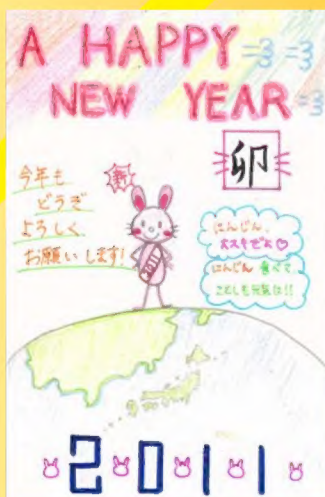 A HAPPY
NEW YEAR
卯
今年も
どうぞ
よろしく
お願いします!
にんじん、
大スキだよ♡
にんじん 食べて
ことしも元気に!!
2011